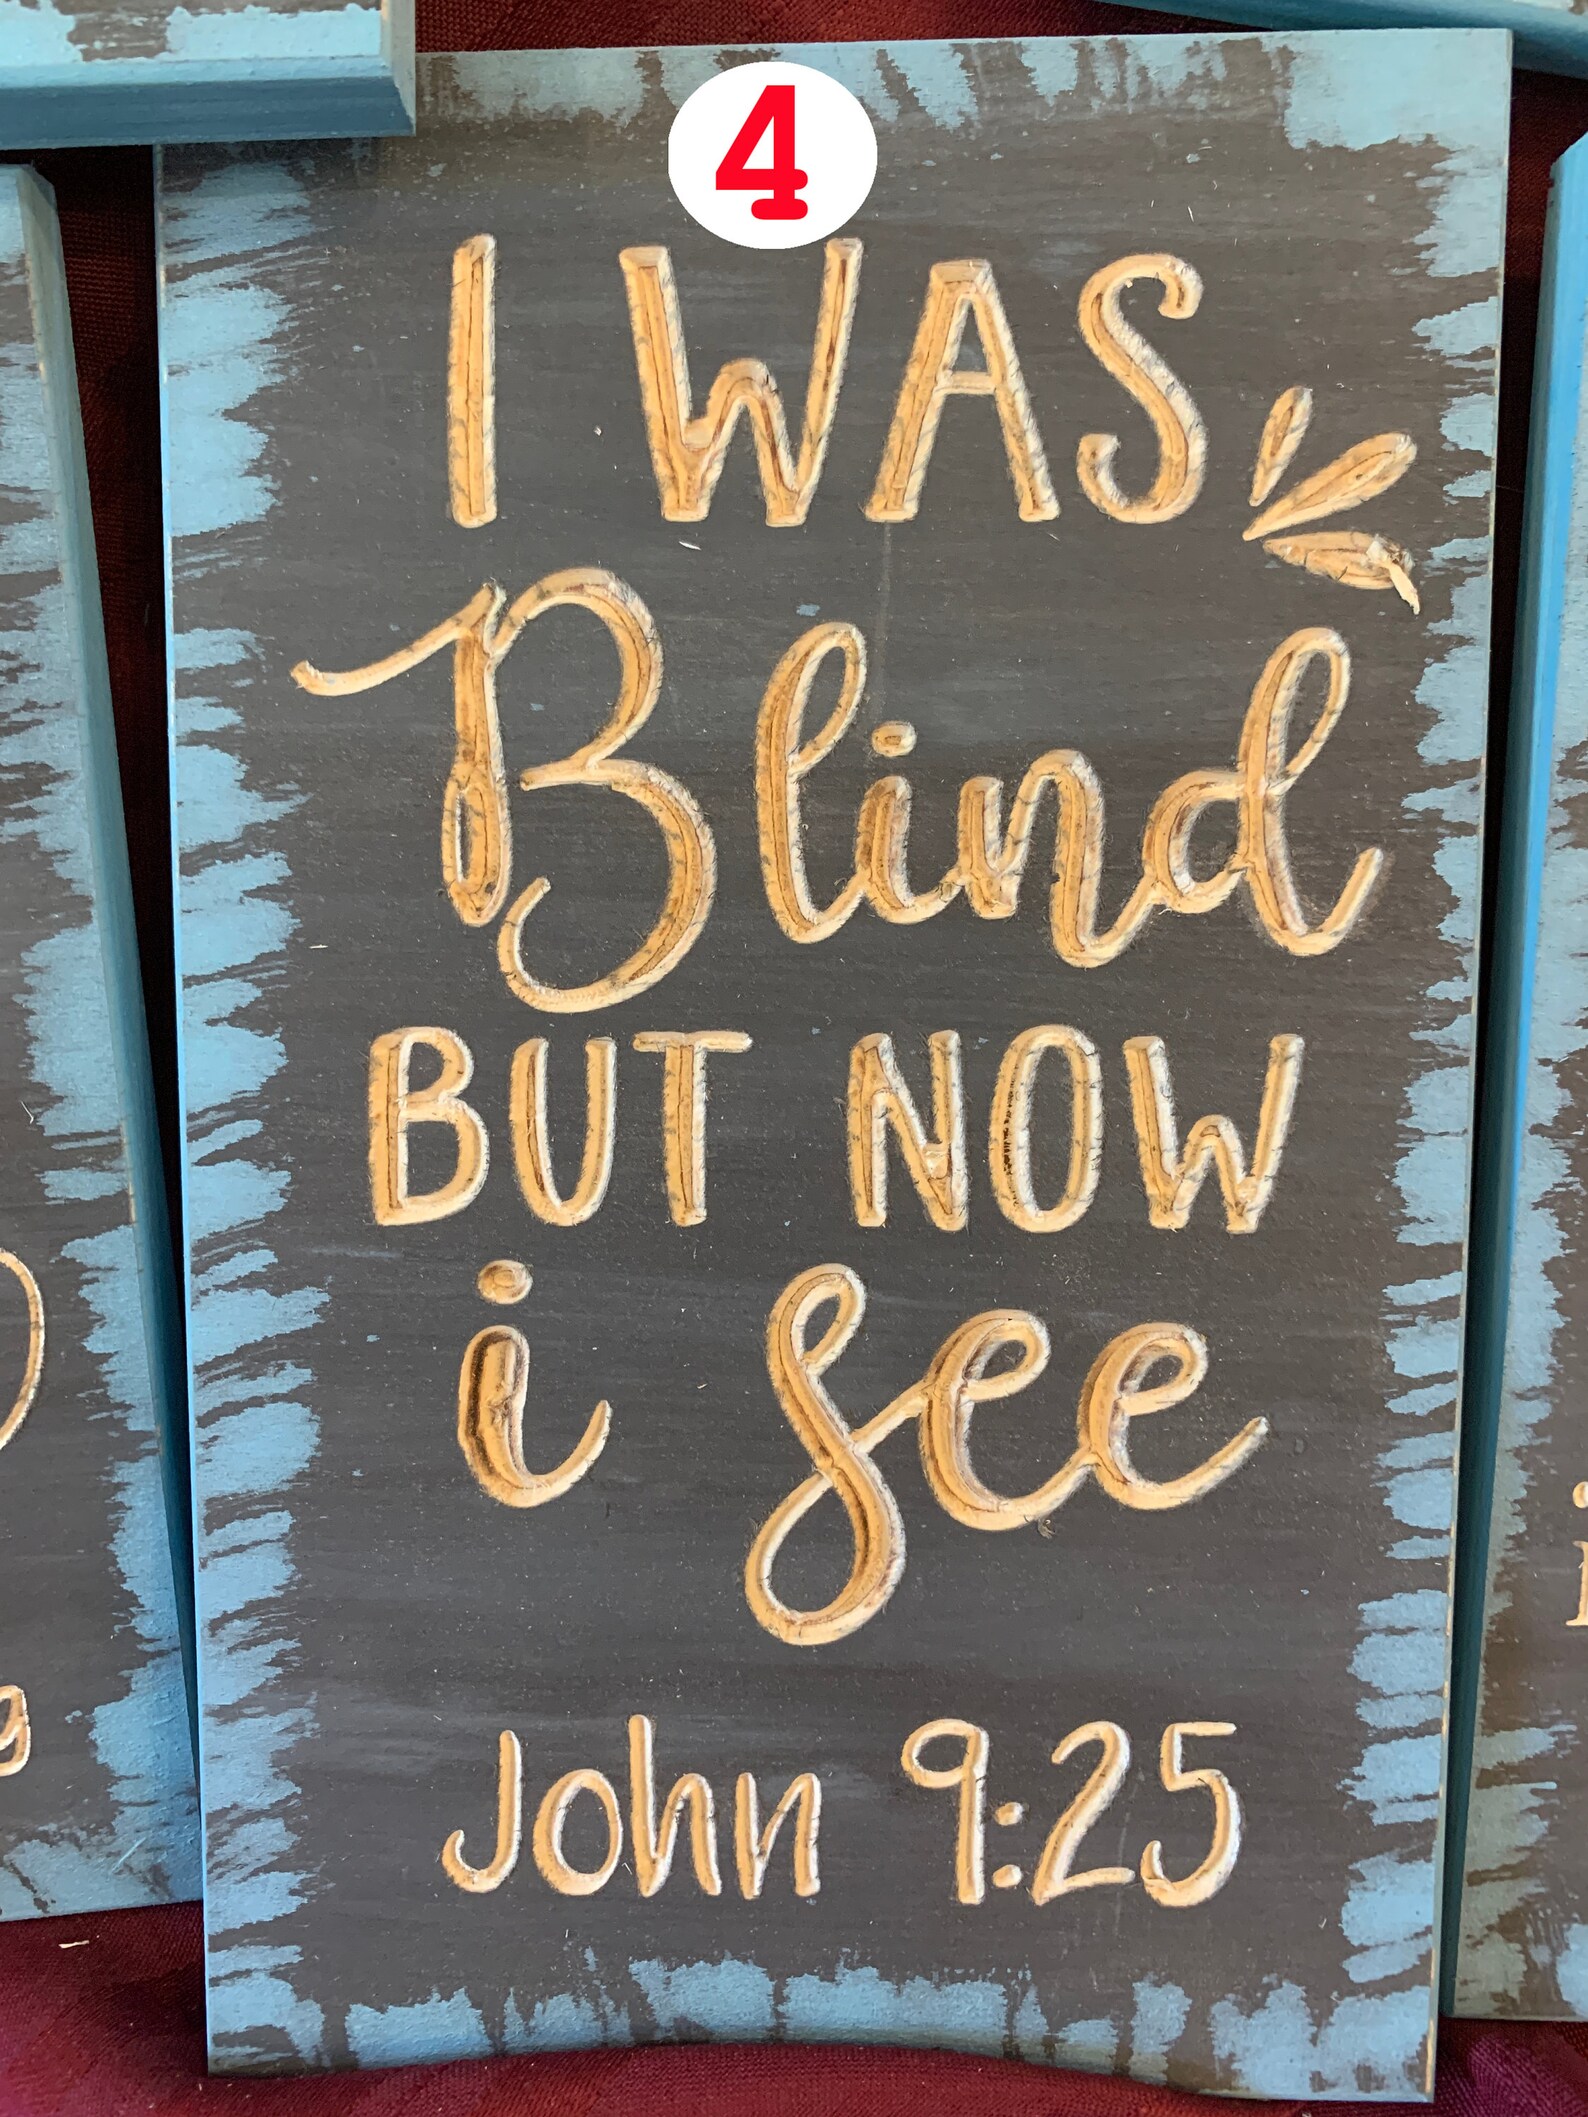 4
I WAS
Blind
BUT NOW
i see
John 9:25